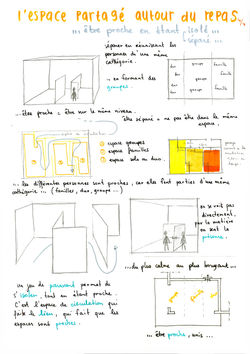 l'espace partagé autour du repas
... être proche en étant isolé ...
séparé ...
séparer en réunissant les
personnes d'une même
cathégorie.
... en formant des
groupes.
duo
duo
duo
famille
groupe
famille
groupe
... être proche = être sur le même niveau.
être séparé = ne pas être dans le même
espace.
espace groupes
espace familles
espace solo ou duo.
... les différentes personnes sont proches, car elles font parties d'une même
cathégorie ... (familles, duo, groupe ...)
on se voit pas
directement,
par la matière
on sent la
présence.
un jeu de paravent permet de
s'isoler, tout en étant proche.
C'est l'espace de circulation qui
fait le lien, qui fait que les
espaces sont proches.
... du plus calme au plus bruyant...
duo
famille
groupe
... être proche, mais ...